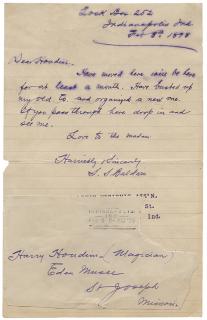 Lock Box 252
Indianapolis Ind.
Feb 8th, 1898
Dear Houdini.
Have moved here, will be here
for at least a month. Have busted up
my old Co. and organized a new one.
If you pass through here drop in and
see me.
Love to the madam.
Hurriedly & Sincerely
S. S. Baldwin
St.
Ind.
Harry Houdini (Magician)
Eden Musee
St Joseph
Missouri